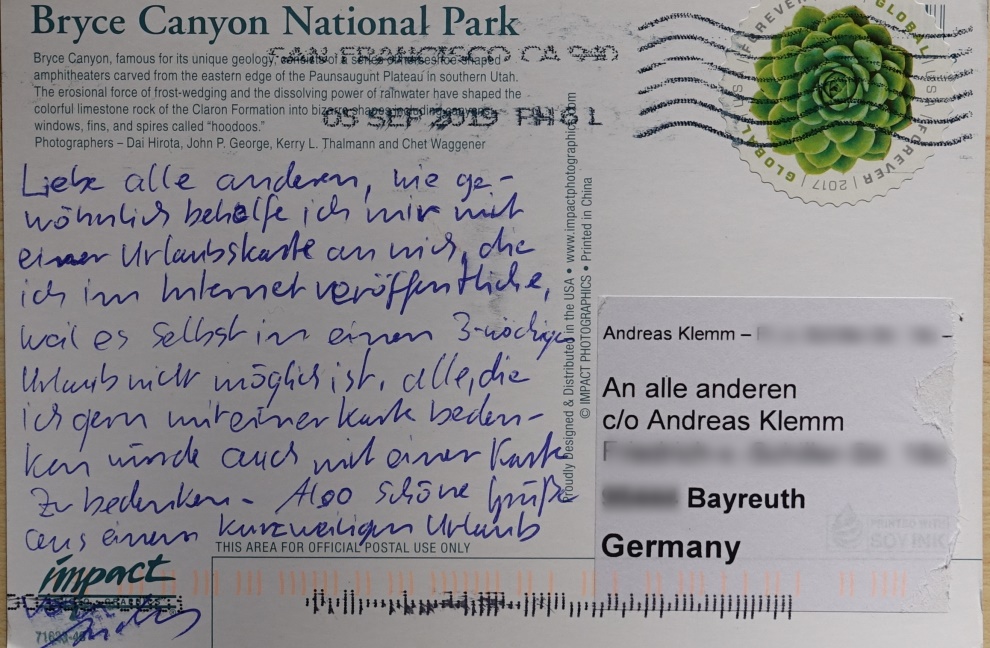 Bryce Canyon National Park
Bryce Canyon, famous for its unique geology, consists of a series of horseshoe-shaped
amphitheaters carved from the eastern edge of the Paunsaugunt Plateau in southern Utah.
The erosional force of frost-wedging and the dissolving power of rainwater have shaped the
colorful limestone rock of the Claron Formation into bizarre shapes including
windows, fins, and spires called “hoodoos.”
Photographers – Dai Hirota, John P. George, Kerry L. Thalmann and Chet Waggener
SAN FRANCISCO CA 940
05 SEP 2019 PM 6 L
GLOBAL FOREVER 2017 GLOBAL FOREVER
Liebe alle anderen, wie ge-
wöhnlich behelfe ich mir mit
einer Urlaubskarte an mich, die
ich im Internet veröffentliche,
weil es selbst in einem 3-wöchigen
Urlaub nicht möglich ist, alle, die
ich gern mit einer Karte beden-
ken würde auch mit einer Karte
zu bedenken. Also schöne Grüße
aus einem kurzweiligen Urlaub
Proudly Designed & Distributed in the USA • www.impactphotographics.com
© IMPACT PHOTOGRAPHICS • Printed in China
Andreas Klemm –
An alle anderen
c/o Andreas Klemm
Bayreuth
Germany
THIS AREA FOR OFFICIAL POSTAL USE ONLY
impact
SOY INK